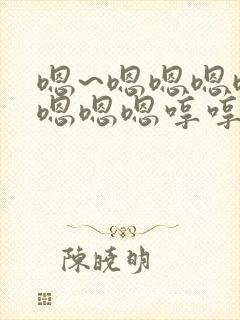 嗯~嗯嗯嗯
嗯嗯嗯哼哼
陳曉明